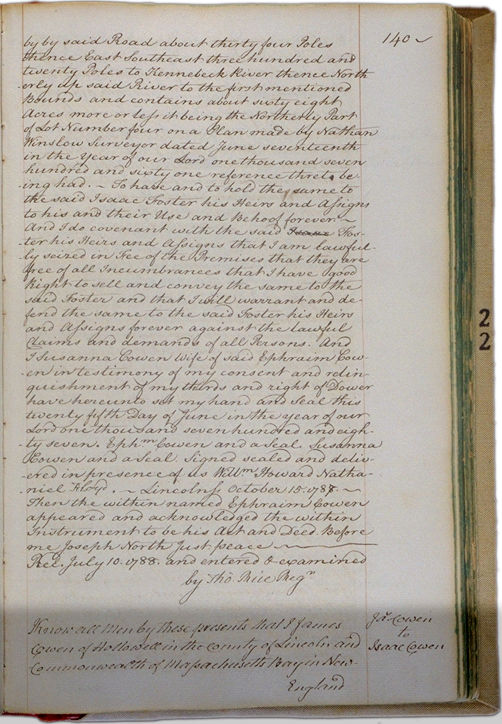 140
by by said Road about thirty four Poles
thence East Southeast three hundred and
twenty Poles to Kennebeck River thence North
erly up said River to the first mentioned
Bounds and contains about sixty eight
Acres more or less it being the Northerly Part
of Lot Number four on a Plan made by Nathan
Winslow Surveyor dated June seventeenth
in the Year of our Lord one thousand seven
hundred and sixty one reference thereto be-
-ing had. ~ To have and to hold the same to
the said Isaac Foster his Heirs and Assigns
to his and their Use and Behoof forever ~
And I do covenant with the said Isaac Fos-
ter his Heirs and Assigns that I am lawful-
-ly seized in Fee of the Premises that they are
free of all Incumbrances that I have good
Right to sell and convey the same to the
said Foster and that I will warrant and de-
fend the same to the said Foster his Heirs
and Assigns forever against the lawful
Claims and demands of all Persons. And
I Susanna Cowen Wife of said Ephraim Cow-
-en in testimony of my consent and relin-
quishment of my thirds and right of Dower
have hereunto set my hand and Seal this
twenty fifth Day of June in the year of our
Lord one thousand seven hundred and eigh-
-ty seven. Ephm Cowen and a Seal. Susanna
Cowen and a Seal. Signed sealed and deliv-
-ered in presence of us Willm Howard Natha-
niel Floyd. ~ Lincolnss October 15. 1788. ~
Then the within named Ephraim Cowen
appeared and acknowledged the within
Instrument to be his Act and Deed Before
me Joseph North Just peace
Rec. July 10. 1788. and entered & examined
by Tho Rice Regr
Know all Men by these presents that I James
Cowen of Hollowell in the County of Lincoln and
Commonwealth of Massachusetts Bay in New-
England
Js. Cowen
to
Isaac Cowen
2
2